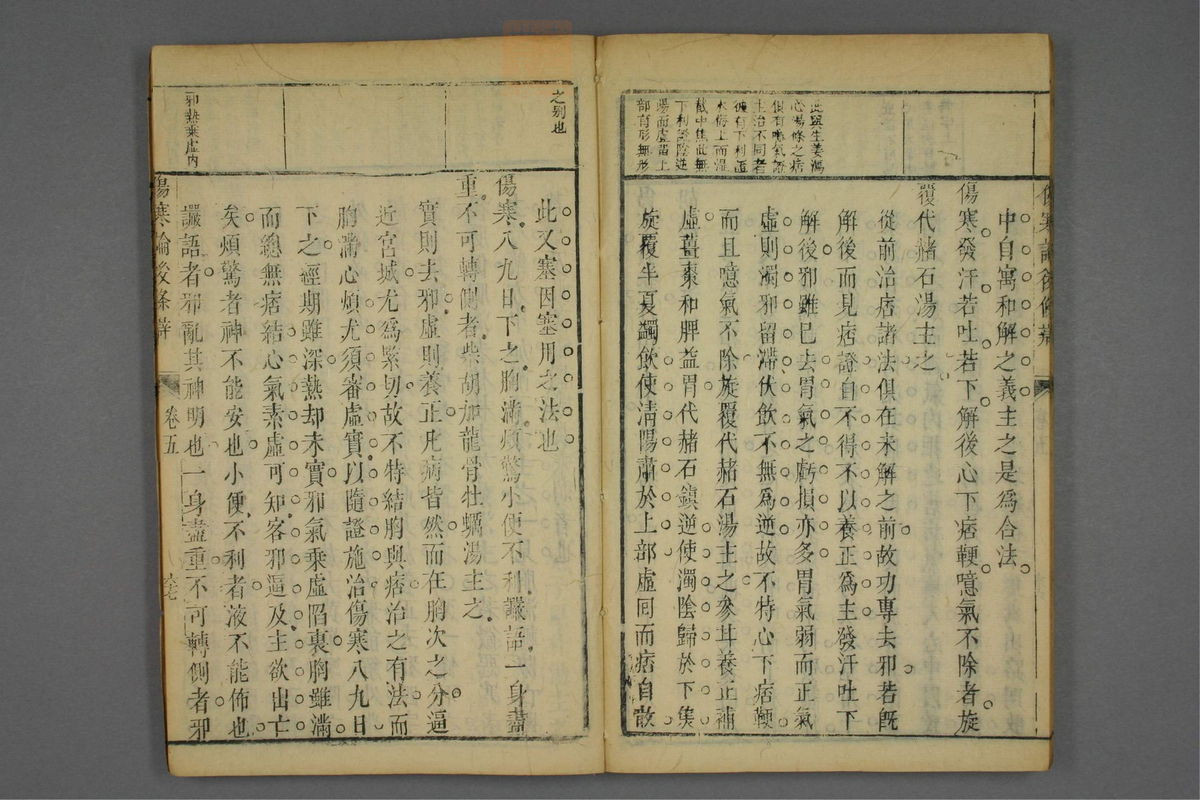 此與生姜瀉
心湯條之痞
但有噫氣證
主治不同者
彼有下利證
水侮上而溼
截中焦此無
下利證陰逆
湯而虛留上
部有形無形
傷寒論後條辨
中自寓和解之義主之是為合法
傷寒發汗若吐若下解後心下痞鞕噫氣不除者旋
覆代赭石湯主之
從前治痞諸法俱在未解之前故功專去邪若既
解後而見痞證自不得不以養正為主發汗吐下
解後邪雖已去胃氣之虧損亦多胃氣弱而正氣
虛則濁邪留滯伏飲不無為逆故不特心下痞鞕
而且噫氣不除旋覆代赭石湯主之參甘養正補
虛薑棗和脾益胃代赭石鎮逆使濁陰歸於下焦
旋覆半夏蠲飲使清陽肅於上部虛回而痞自散
之別也
邪熱乘虛內
此又塞因塞用之法也
傷寒八九日下之胸滿煩驚小便不利讝語一身盡
重不可轉側者柴胡加龍骨牡蠣湯主之
實則去邪虛則養正凡病皆然而在胸次之分逼
近宮城尤為緊切故不特結胸與痞治之有法而
胸滿心煩尤須審虛實以隨證施治傷寒八九日
下之經期雖深熱却未實邪氣乘虛陷裏胸雖滿
而總無痞結心氣素虛可知客邪逼及主欲出亡
矣煩驚者神不能安也小便不利者液不能佈也
讝語者邪亂其神明也一身盡重不可轉側者邪
傷寒論後條辨 卷五 六七